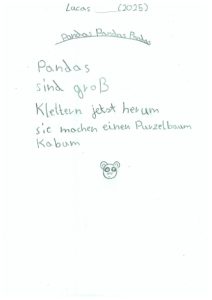 Lucas ____ (2025)
Pandas Pandas Pandas
Pandas
sind groß
Klettern jetzt herum
sie machen einen Purzelbaum
Kabum